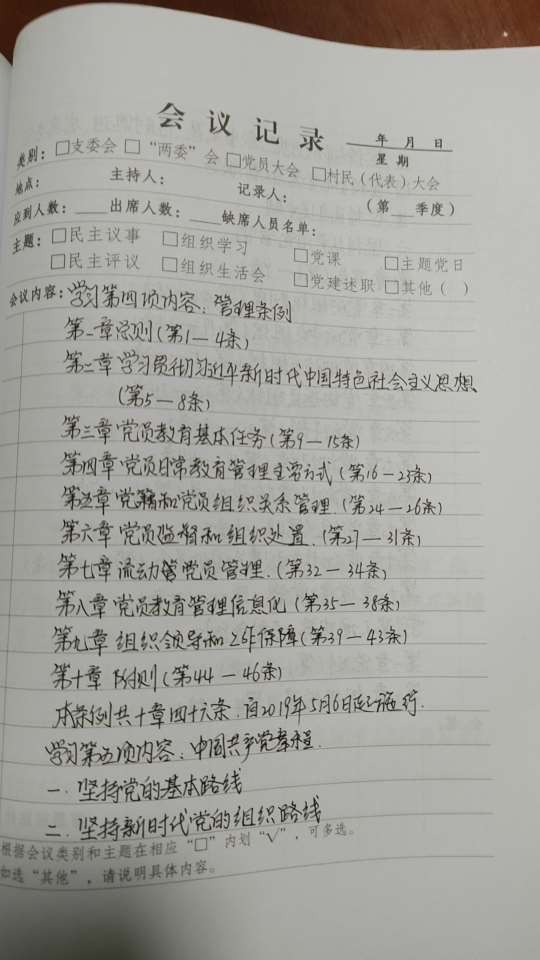 会议记录
年 月 日
星期
类别：□支委会 □“两委”会 □党员大会 □村民（代表）大会
地点： 主持人： 记录人： （第 季度）
应到人数：____出席人数：____缺席人员名单：
主题：□民主议事 □组织学习 □党课 □主题党日
□民主评议 □组织生活会 □党建述职 □其他（ ）
会议内容：学习第四项内容：管理条例
第一章总则（第1—4条）
第二章学习贯彻习近平新时代中国特色社会主义思想
（第5—8条）
第三章党员教育基本任务（第9—15条）
第四章党员日常教育管理主要方式（第16—23条）
第五章党籍和党员组织关系管理（第24—26条）
第六章党员监督和组织处置.（第27—31条）
第七章流动党员管理.（第32—34条）
第八章党员教育管理信息化（第35—38条）
第九章组织领导和工作保障（第39—43条）
第十章附则（第44—46条）
本条例共十章四十六条.自2019年5月6日起施行.
学习第五项内容：中国共产党章程.
一.坚持党的基本路线
二.坚持新时代党的组织路线
根据会议类别和主题在相应“□”内划“√”，可多选。
如选“其他”，请说明具体内容。